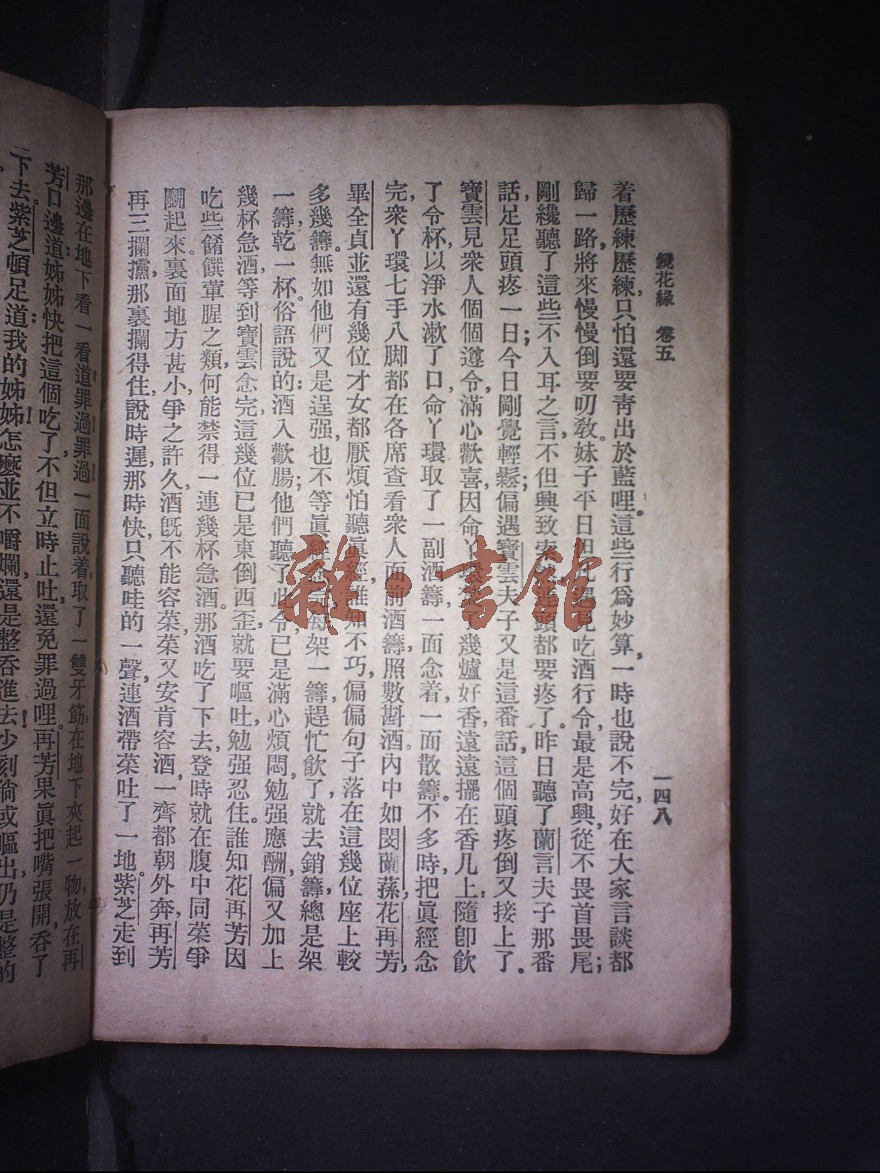 鏡花緣　卷五
一四八
着歷練歷練,只怕還要靑出於藍哩。這些行爲妙算,一時也說不完,好在大家言談都
歸一路,將來慢慢倒要叨敎。妹子平日但凡遇見吃酒行令,最是高興,從不畏首畏尾;
剛纔聽了這些不入耳之言,不但興致索然,連頭都要疼了。昨日聽了蘭言夫子那番
話,足足頭疼一日,今日剛覺輕鬆,偏遇寶雲夫子又是這番話,這個頭疼倒又接上了。
寶雲見衆人個個遵令,滿心歡喜,因命丫環幾爐好香,遠遠擺在香几上,隨卽飲
了令杯,以淨水漱了口,命丫環取了一副酒籌,一面念着,一面散籌。不多時,把眞經念
完,衆丫環七手八脚都在各席查看衆人面前酒籌,照數斟酒。內中如閔蘭蓀花再芳,
畢全貞並還有幾位才女都厭煩怕聽眞經,誰知不巧,偏偏句子落在這幾位座上較
多幾籌,無如他們又是逞强,也不等眞經念完,每架一籌,趕忙飲了,就去銷籌,總是架
一籌乾一杯。俗語說的:酒入歡腸;他們聽了此令,已是滿心煩悶,勉强應酬,偏又加上
幾杯急酒,等到寶雲念完,這幾位已是東倒西歪,就要嘔吐,勉强忍住。誰知花再芳因
吃些餚饌葷腥之類,何能禁得一連幾杯急酒。那酒吃了下去,登時就在腹中同菜爭
鬭起來。裏面地方甚小,爭之許久,酒旣不能容菜,菜又安肯容酒,一齊都朝外奔,再芳
再三攔擋,那裏攔得住,說時遲,那時快,只聽哇的一聲,連酒帶菜吐了一地。紫芝走到
那邊在地下看一看道:罪過!罪過!一面說着,取了一雙牙筯,在地下夾起一物,放在再
芳口邊道:姊姊快把這個吃了,不但立時止吐,還免罪過哩。再芳果眞把嘴張開,吞了
下去。紫芝頓足道:我的姊姊!怎麽並不嚼爛,還是整吞進去!少刻倘或嘔出,仍是整的
雜·書館